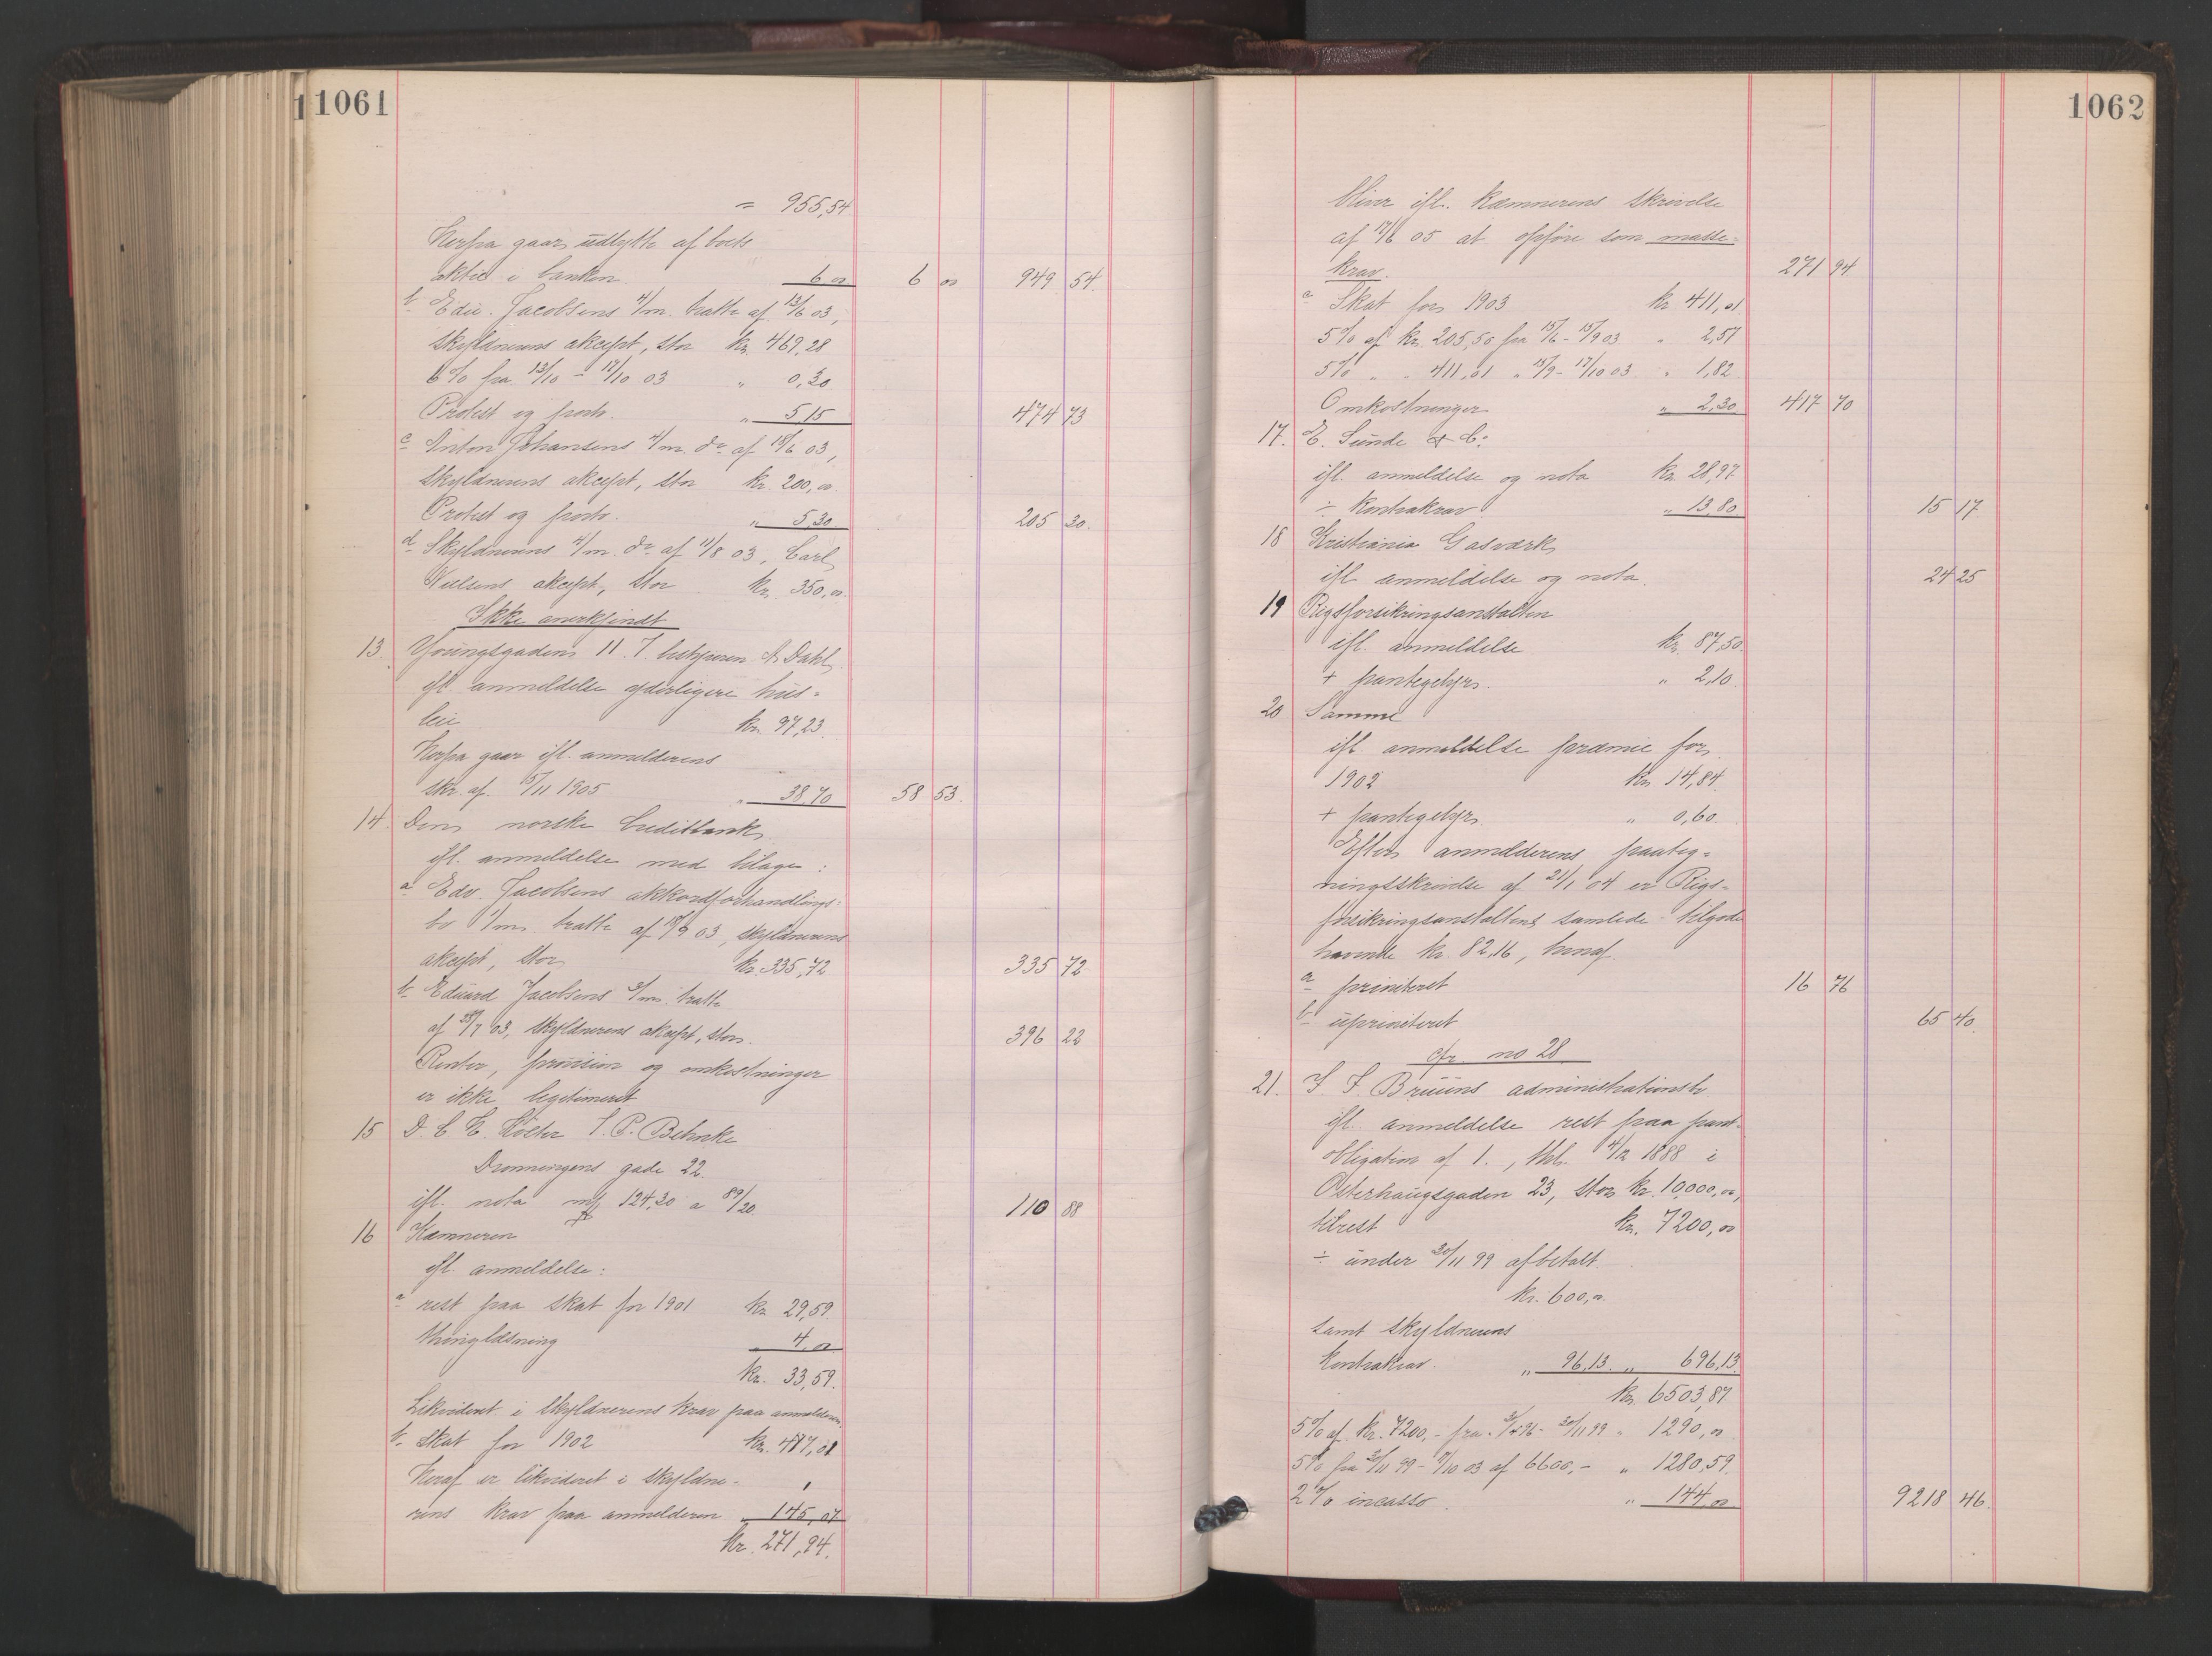 1061
= 955,54
Herfra gaar udbytte af boets
aktie i banken 6,00 6 00 949 54
b. Edv. Jacobsens 4/m. tratte af 13/6 03,
skyldnerens aksept, stor kr. 469,28
6 % fra 13/10 - 17/10 03 " 0,30
Protest og porto. " 5,15 474 73
c. Anton Johansens 4/m. do. af 18/6 03,
skyldnerens aksept, stor kr. 200,00
Protest og porto. " 5,30 205 30.
d. Skyldnerens 4/m. do. af 11/8 03, Carl
Nielsens aksept, stor kr. 350,00.
Ikke anerkjendt
13. Youngsgaden 11. T. bestyreren A. Dahl,
ifl. anmeldelse yderligere hus=
leie kr. 97,23.
Herfra gaar ifl. anmelderens
skr. af. 15/11 1905 " 38,70 58 53.
14. Den norske Creditbank,
ifl. anmeldelse med bilage:
a. Edv. Jacobsens akkordforhandlings=
bo 1/ms. tratte af 18/9 03, skyldnerens
aksept, stor kr. 335,72 335 72
b. Eduard Jacobsens 3/ms. tratte
af 23/7 03, skyldnerens aksept, stor. 396 22
Renter, provision og omkostninger
er ikke legitimeret
15 D. C. H. Költer I. P. Behncke
Dronningens gade 22.
ifl. nota mk 124,30 a 89/20. 110 88
16 Kæmneren
ifl. anmeldelse:
a. rest paa skat for 1901 kr. 29,59.
thinglæsning 4,00
kr. 33,59.
Likvideret i skyldnerens krav paa anmelderen.
b. Skat for 1902 kr. 417,01
Heraf er likvideret i skyldne-
rens krav paa anmelderen " 145,07
kr. 271,94.
1062
bliver ifl. kæmnerens skrivelse
af 17/6 05 at opføre som masse=
krav. 271 94
c. Skat for 1903 kr. 411,01
5 % af kr. 205,50 fra 15/6 - 15/9 03 " 2,57
5 % " " 411,01 " 15/9 - 17/10 03 " 1,82
Omkostninger " 2,30 417 70
17. E. Sunde & Co.
ifl. anmeldelse og nota kr. 28,97
÷ kontrakrav " 13,80. 15 17
18 Kristiania Gasværk,
ifl. anmeldelse og nota. 24 25
19 Rigsforsikringsanstalten
ifl. anmeldelse kr. 87,50.
+ pantegebyr. " 2,10.
20 Samme
ifl. anmeldelse præmie for
1902 kr. 14,84.
+ pantegebyr. " 0,60.
Efter anmelderens paateg=
ningsskrivelse af 21/1 04 er Rigs=
forsikringsanstaltens samlede tilgode
havende kr. 82,16, hvoraf.
a. prioriteret 16 76
b. uprioriteret 65 40.
cfr. no 28.
21. I. F. Bruuns administrationsbo
ifl. anmeldelse rest paa pant=
obligation af 1., thl. 4/12 1888 i
Osterhaugsgaden 23, stor kr. 10,000,00,
tilrest kr. 7200,00
÷ under 30/11 99 afbetalt.
kr. 600,00.
samt skyldnerens
kontrakrav. " 96,13. " 696,13
kr. 6503,87.
5 % af kr. 7200,- fra 96- 30/11 99 " 1290,00
5 % fra 30/11 99 - 17/10 03 af 6600,- " 1280,59.
2 % incasso " 144,00. 9218 46.